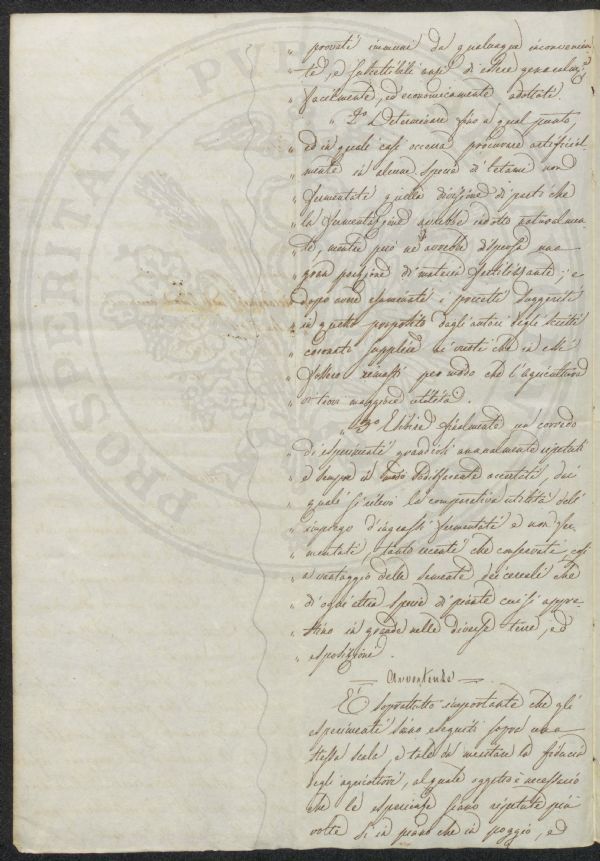 " provati immuni da qualunque inconvenien
" te, e suscettibili anzi di essere generalm.e
" facilmente, ed economicamente adottati.
" 2.o Determinare fino a qual punto,
" ed in quali casi occorra procurare artificial
" mente in alcune specie di letami non
" fermentati quella divisione di parti che
" la fermentazione avrebbe indotto naturalmen
" te, mentre però ne avrebbe dispersa una
" gran porzione di materia fertilizzante; e
" dopo avere esaminati i processi suggeriti
" in questo proposito dagli autori degli scritti
" coronati supplire ai vuoti che in essi
" fossero rimasti per modo che l'agricoltura
" vi trovi maggiore utilità.
" 3.o Esibire finalmente un corredo
" di esperimenti grandiosi annualmente ripetuti
" e sempre in modo soddisfacente accertati, dai
" quali si rilevi la comparativa utilità dell'
" impiego d'ingrassi fermentati e non fer
" mentati, tanto recenti che conservati, così
" a vantaggio delle sementi dei cereali che
" di ogni altra specie di piante cui si appre
" stino in grande nelle diverse terre, ed
" esposizioni.
Avvertenze
È soprattutto importante che gli
esperimenti siano eseguiti sopra una
stessa scala e tale da meritare la fiducia
degli agricoltori, al quale oggetto è necessario
che le esperienze siano ripetute più
volte sì in piano che in poggio, ed
PROSPERITATI PVB